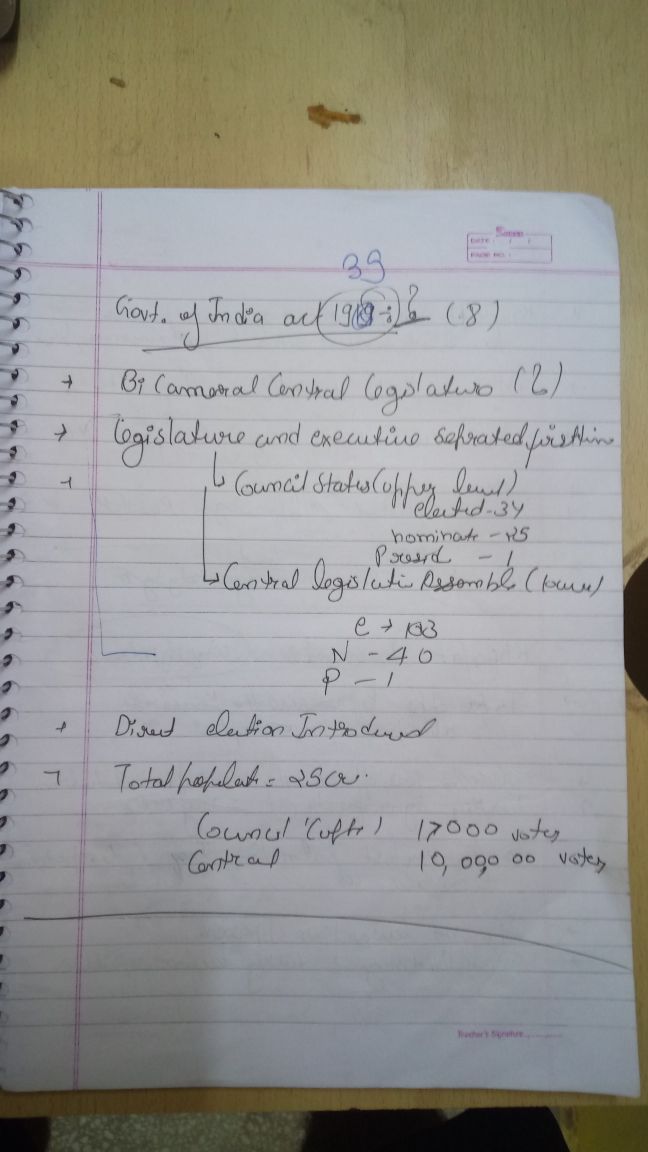 Saroo
DATE : / /
PAGE NO. :
39
Govt. of India act 1919 :- (8)
→ Bi Cameral Central legislature (2)
→ legislature and executive seprated
→ Council States (upper level)
elected - 34
nominate - 25
Presid - 1
→ Central legislati Assemble (lower)
e → 103
N - 40
P - 1
→ Direct election Introduced
→ Total populat = 25 cr.
Council (upp) 17000 votes
Central 10,000 00 votes
Teacher's Signature